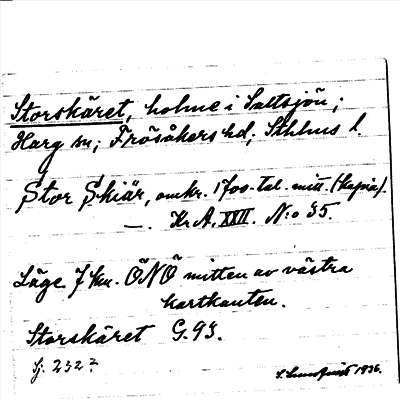 Storskäret, holme i Saltsjön;
Harg sn; Frösåkers hd; Sthlms l.
Stor Skiär, omkr. 1700-tal. mitt. (kopia).
—. Kr. A. XXII. N:o 35.
Läge 7 km. ÖNÖ mitten av västra
kartkanten.
Storskäret G. 93.
Sj. 232?
1936.